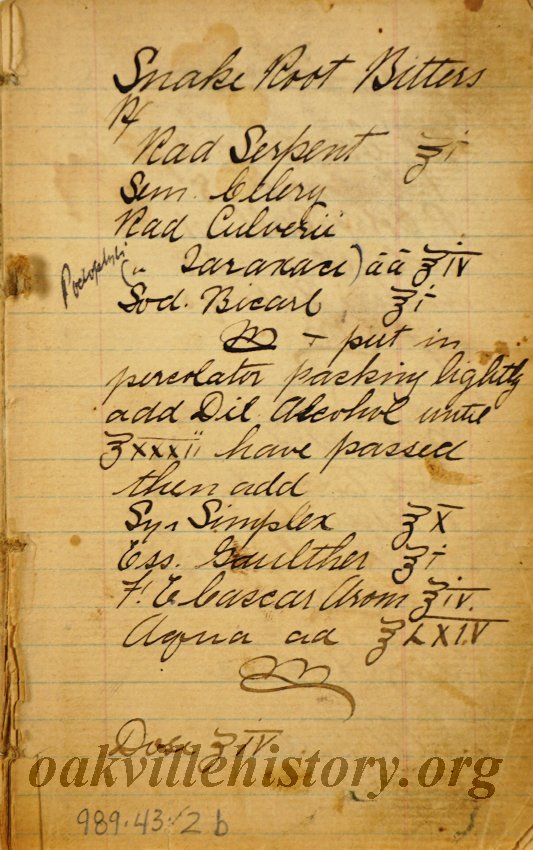 Snake Root Bitters
℞
Rad Serpent ℥i
Sem. Celery
Rad Culverii
Podophyli
(" Taraxaci) āā ℥iv
Sod. Bicarb ℥i
M + put in
percolator packing lightly
add Dil. Alcohol until
℥xxxii have passed
then add
Syr Simplex ℥x
Ess. Gaulther ℥i
F. E Cascar Arom ℥iv.
Aqua ad ℥LXIV
M
Dose ʒiv
oakvillehistory.org
989.43.2 b